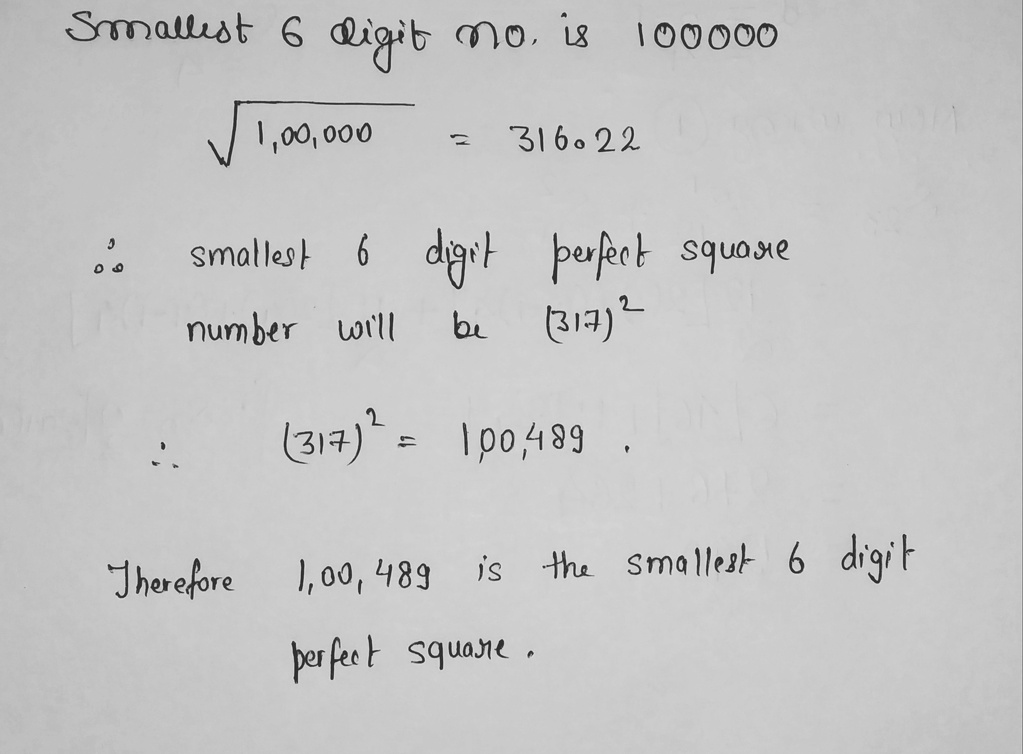 Smallest 6 digit no. is 100000
√1,00,000 = 316.22
∴ smallest 6 digit perfect square
number will be (317)²
∴ (317)² = 1,00,489.
Therefore 1,00,489 is the smallest 6 digit
perfect square.